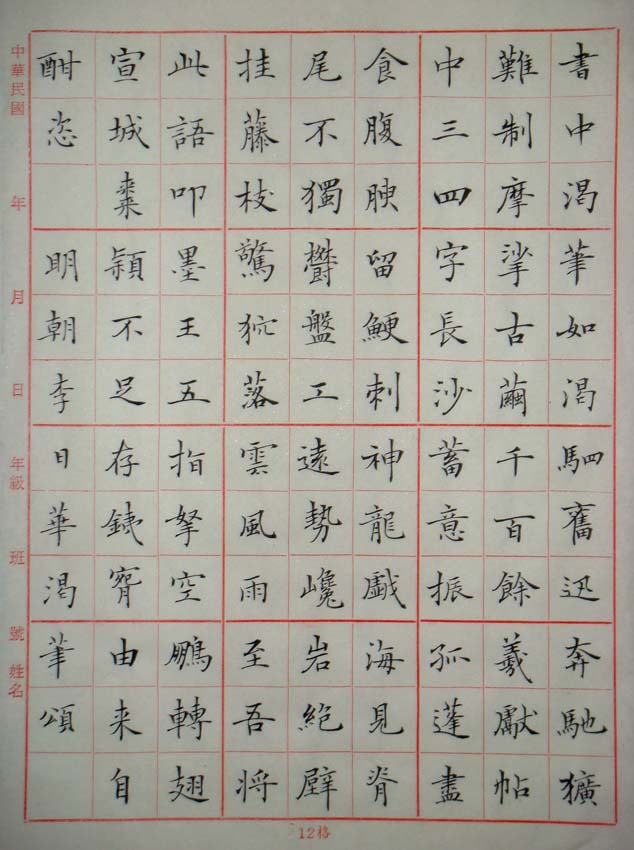 書中渴筆如渴駟奮迅奔馳獷
難制摩挲古繭千百餘羲獻帖
中三四字長沙蓄意振孤蓬盡
食腹腴留鯁刺神龍戲海見脊
尾不獨鬱盤工遠勢巉岩絕壁
挂藤枝驚狖落雲風雨至吾將
此語叩墨王五指拏空鵬轉翅
宣城棗穎不足存鐵由来自
酣恣 明朝李日華渴筆頌
中華民國 年 月 日 年級 班 號 姓名
12格